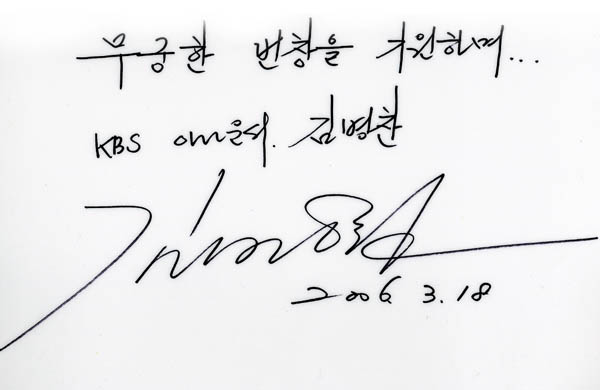 무궁한 번창을 기원하며...
KBS 아나운서. 김병찬
2006. 3. 18